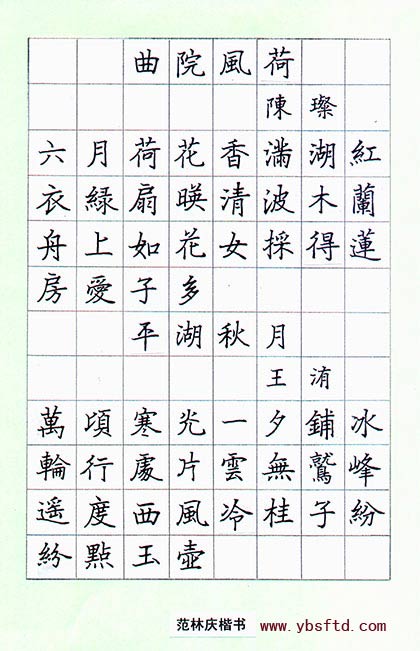 曲院風荷
陳璨
六月荷花香滿湖紅
衣緑扇暎清波木蘭
舟上如花女採得蓮
房愛子多
平湖秋月
王洧
萬頃寒光一夕鋪冰
輪行處片雲無鷲峰
遥度西風冷桂子紛
紛點玉壺
范林庆楷书 www.ybsftd.com